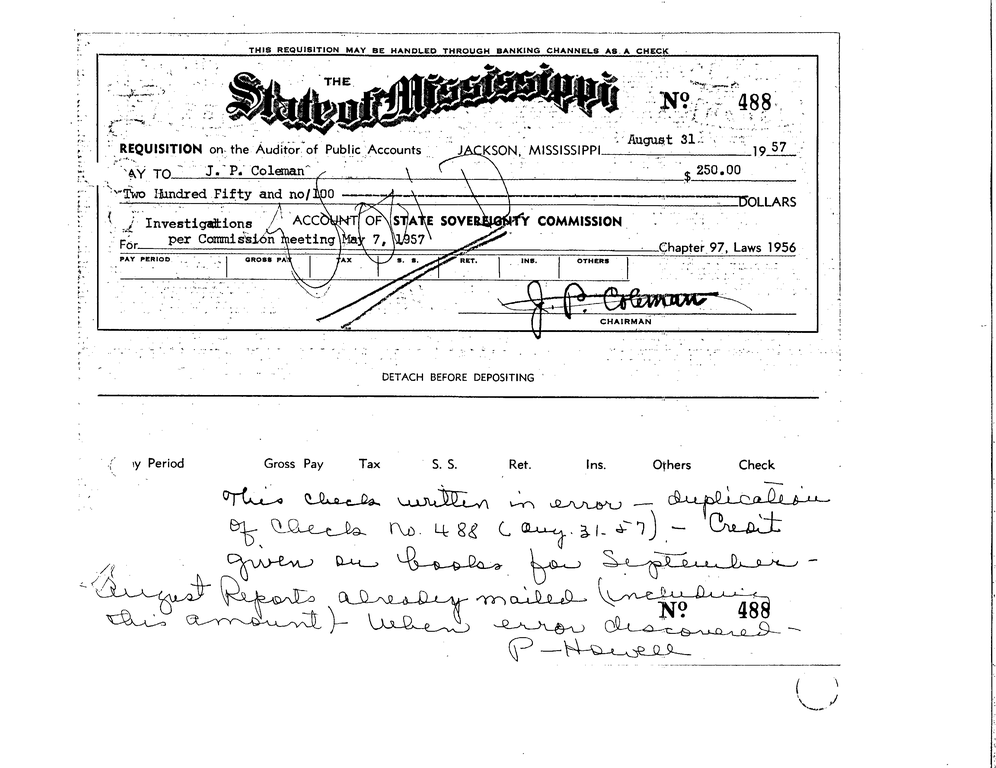 THIS REQUISITION MAY BE HANDLED THROUGH BANKING CHANNELS AS A CHECK
THE
State of Mississippi
Nº 488
August 31
REQUISITION on the Auditor of Public Accounts JACKSON, MISSISSIPPI 19 57
PAY TO J. P. Coleman $ 250.00
Two Hundred Fifty and no/100 DOLLARS
Investigations ACCOUNT OF STATE SOVEREIGNTY COMMISSION
For per Commission meeting May 7, 1957 Chapter 97, Laws 1956
PAY PERIOD GROSS PAY TAX S. S. RET. INS. OTHERS
VOID
J. P. Coleman
CHAIRMAN
DETACH BEFORE DEPOSITING
y Period Gross Pay Tax S. S. Ret. Ins. Others Check
This check written in error — duplication
of Check No. 488 (Aug. 31-57) — Credit
given on books for September —
August Reports already mailed (including
Nº 488
this amount) when error discovered —
P — Howell